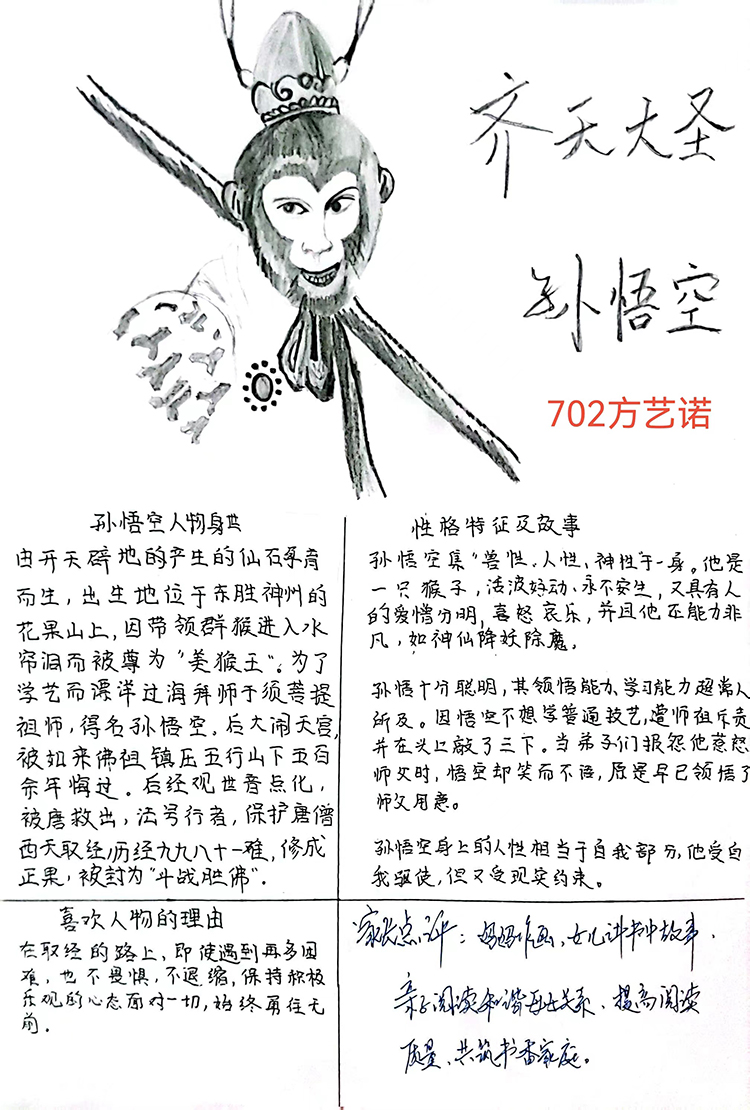 齐天大圣
孙悟空
702方艺诺
孙悟空人物身世
由开天辟地的产生的仙石孕育
而生，出生地位于东胜神州的
花果山上，因带领群猴进入水
帘洞而被尊为“美猴王”。为了
学艺而漂洋过海拜师于须菩提
祖师，得名孙悟空，后大闹天宫，
被如来佛祖镇压五行山下五百
余年悔过。后经观世音点化，
被唐救出，法号行者，保护唐僧
西天取经历经九九八十一难，修成
正果，被封为“斗战胜佛”.
性格特征及故事
孙悟空集“兽性、人性、神性于一身。他是
一只猴子，活波好动、永不安生，又具有人
的爱憎分明，喜怒哀乐，并且他还能力非
凡，如神仙降妖除魔，
孙悟十分聪明，其领悟能力、学习能力超常人
所及。因悟空不想学普通技艺，遭师祖斥责
并在头上敲了三下。当弟子们报怨他惹怒
师父时，悟空却笑而不语，原是早已领悟了
师父用意。
孙悟空身上的人性相当于自我部分，他受自
我驱使，但又受现实约束。
喜欢人物的理由
在取经的路上，即使遇到再多困
难，也不畏惧，不退缩，保持积极
乐观的心态面对一切，始终勇往无
前.
家长点评：妈妈作画，女儿讲书中故事，
亲子阅读和谐母女关系、提高阅读
质量、共筑书香家庭。